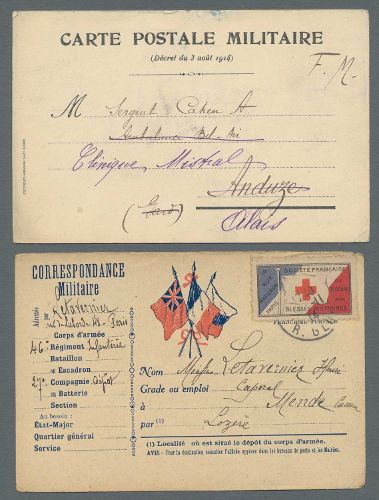 CARTE POSTALE MILITAIRE
(Décret du 3 août 1914)
F. M.
M Sergent Cahen A
Ambulance
Clinique Mistral
Anduze
(Gard)
Alais
CORRESPONDANCE
Militaire
Adressée par Letavernier
Paris
Corps d'armée
46e Régiment Infanterie
Bataillon
ou Escadron
27e Compagnie Dépôt
ou Batterie
Section
Au besoin :
État-Major
Quartier général
Service
SOCIÉTÉ FRANÇAISE
BLESSÉS MILITAIRES
PARIS
FRANCHISE POSTALE
Nom Letavernier
Grade ou emploi Caporal
à Mende Caserne
par (1) Lozère
(1) Localité où est situé le dépôt du corps d'armée.
AVIS - Pour la destination consulter l'affiche apposée dans les bureaux de poste et les Mairies.